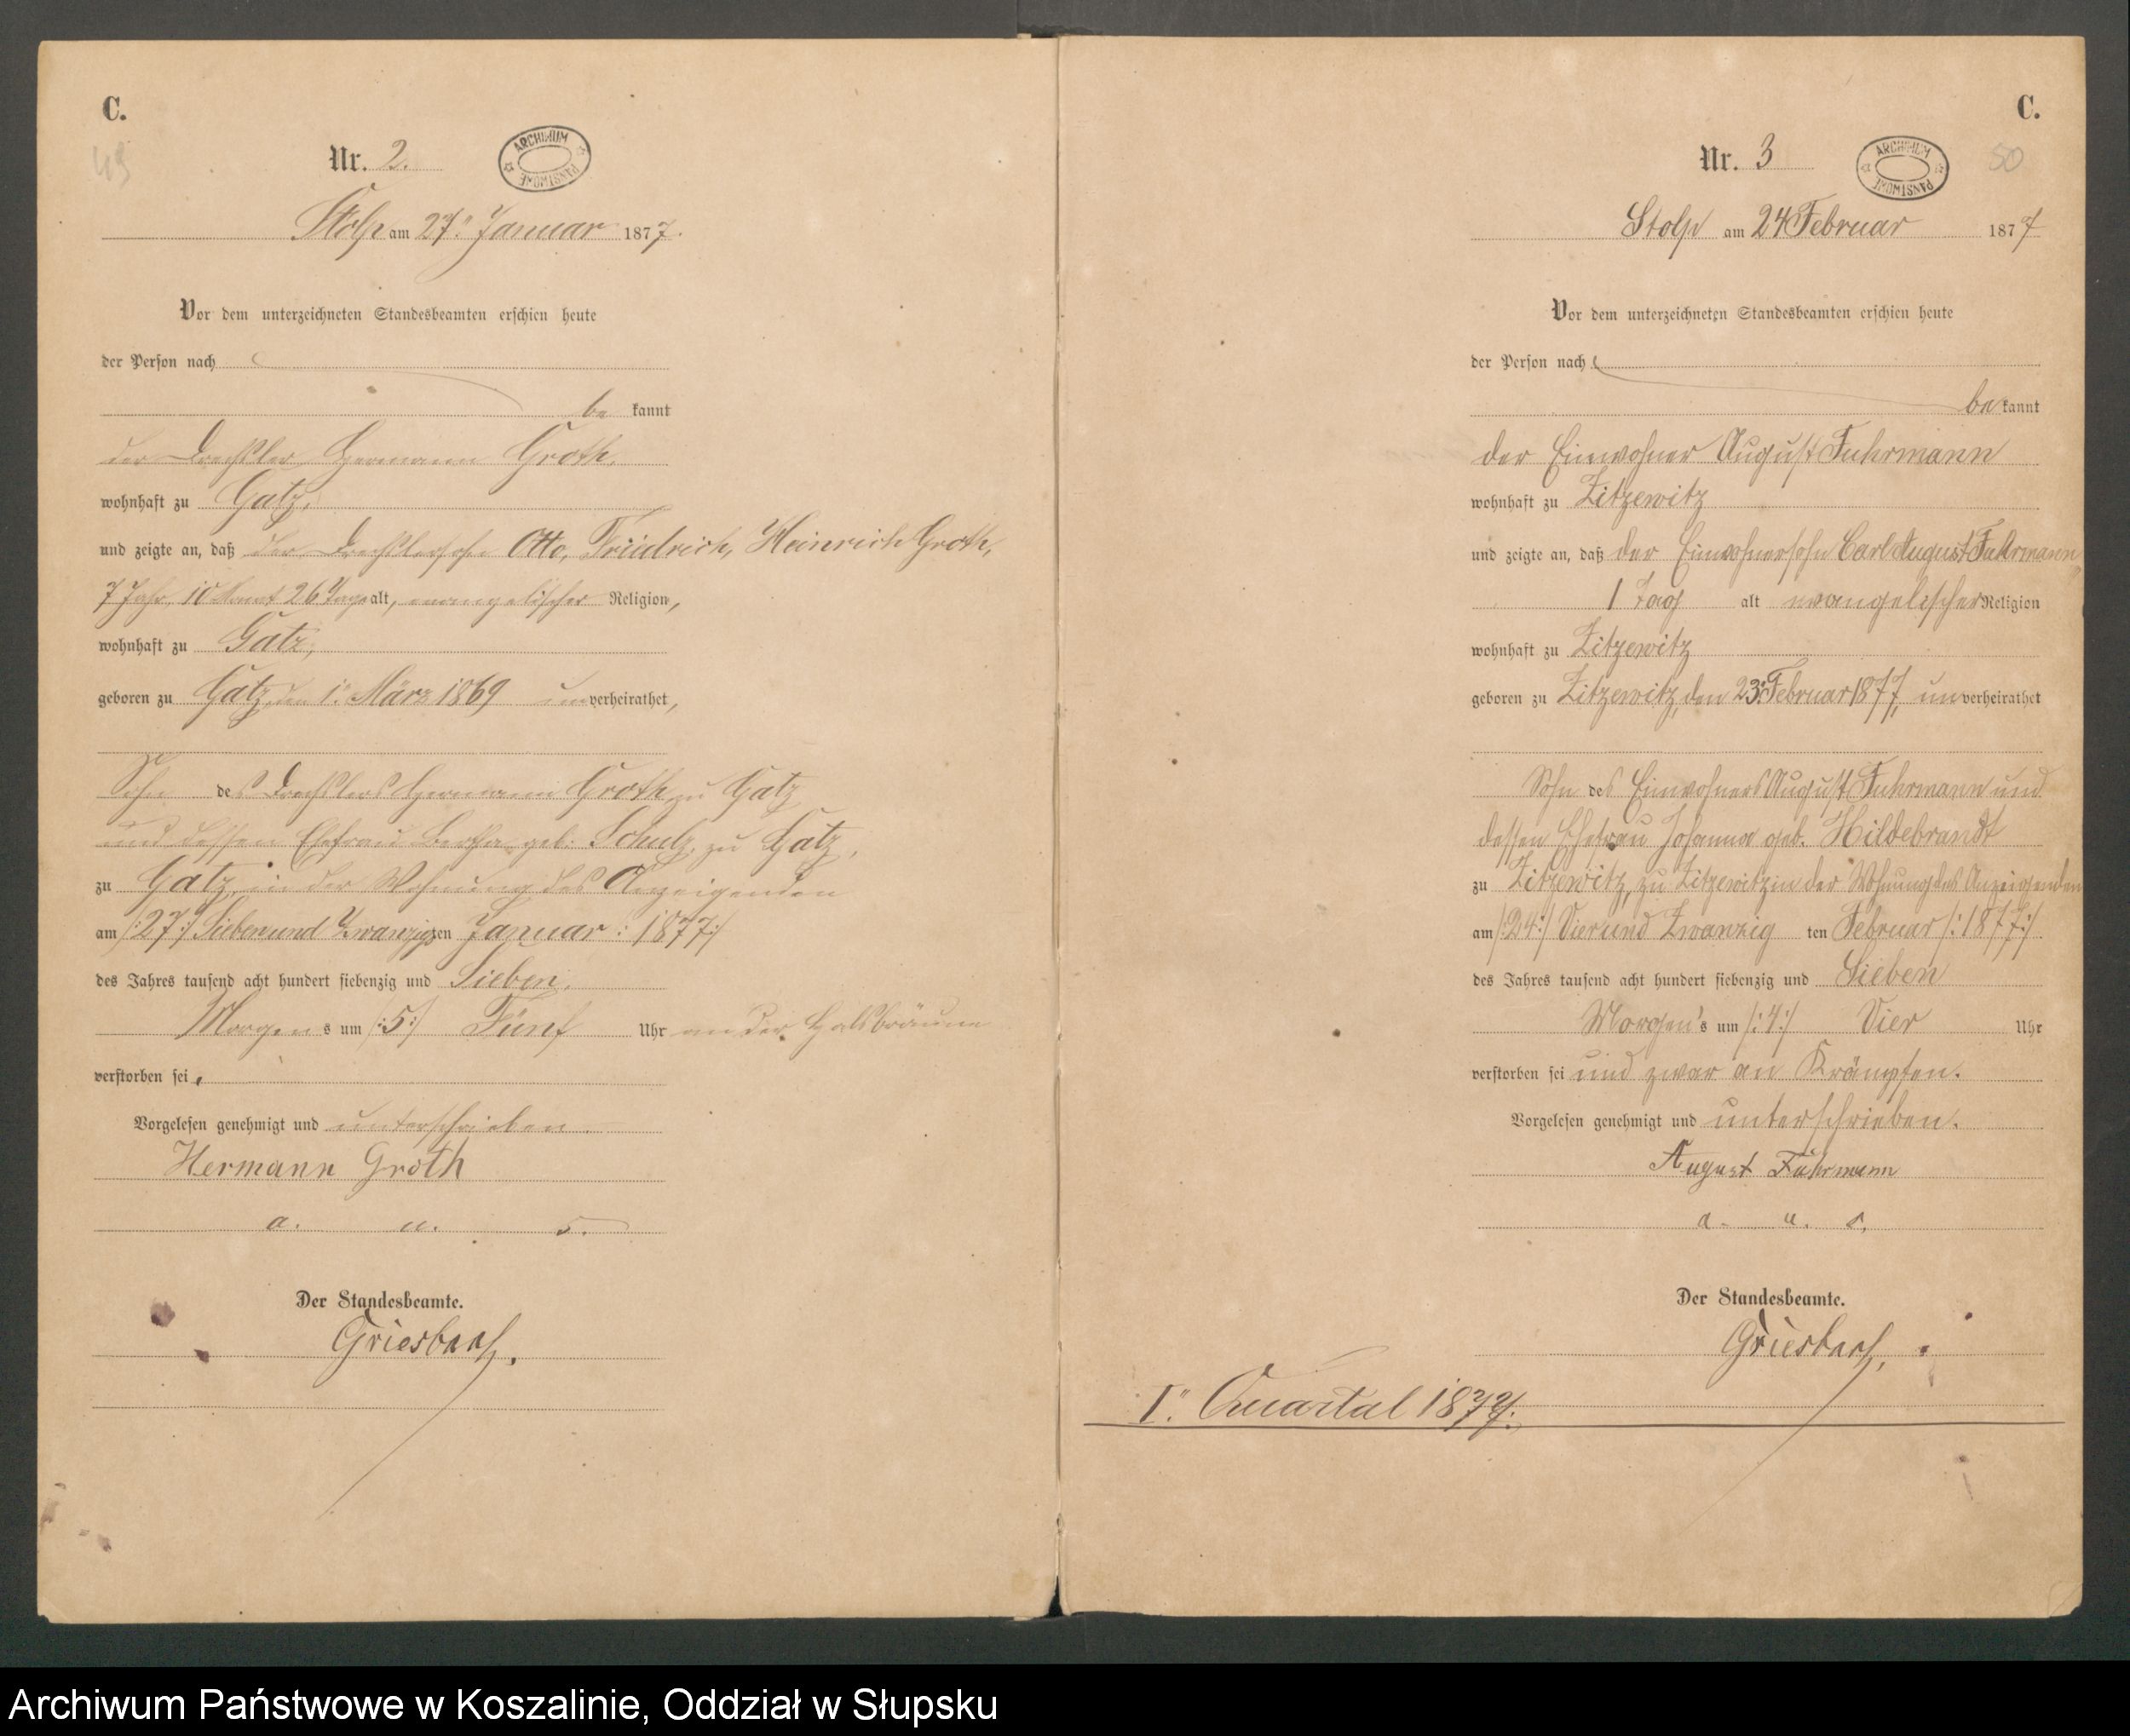 C.
49
Nr. 2.
ARCHIWUM PAŃSTWOWE
Stolp am 27" Januar 1877.
Vor dem unterzeichneten Standesbeamten erschien heute
der Person nach
be kannt
der Drechsler Hermann Groth,
wohnhaft zu Gatz,
und zeigte an, daß der Drechslersohn Otto, Friedrich, Heinrich Groth,
7 Jahr, 10 Monat 26 Tage alt, evangelischer Religion,
wohnhaft zu Gatz,
geboren zu Gatz den 1. März 1869 unverheirathet,
Sohn des Drechslers Hermann Groth zu Gatz
und dessen Ehefrau Bertha geb: Schulz, zu Gatz,
zu Gatz, in der Wohnung des Anzeigenden
am /:27:/ Sieben und Zwanzigsten Januar : 1877:/
des Jahres tausend acht hundert siebenzig und Sieben,
Morgens um /:5:/ Fünf Uhr an der Halsbräune
verstorben sei.
Vorgelesen genehmigt und unterschrieben
Hermann Groth
a. u. s.
Der Standesbeamte.
Griesbach.
C.
50
Nr. 3
ARCHIWUM PAŃSTWOWE
Stolp am 24 Februar 1877
Vor dem unterzeichneten Standesbeamten erschien heute
der Person nach
be kannt
der Einwohner August Fuhrmann
wohnhaft zu Zitzewitz
und zeigte an, daß der Einwohnersohn Carl August Fuhrmann
1 Tag alt evangelischer Religion
wohnhaft zu Zitzewitz
geboren zu Zitzewitz, den 23. Februar 1877, unverheirathet
Sohn des Einwohners August Fuhrmann und
dessen Ehefrau Johanna geb. Hildebrandt
zu Zitzewitz, zu Zitzewitz in der Wohnung des Anzeigenden
am /:24:/ Vier und Zwanzig ten Februar /:1877:/
des Jahres tausend acht hundert siebenzig und Sieben
Morgen's um /:4:/ Vier Uhr
verstorben sei und zwar an Krämpfen.
Vorgelesen genehmigt und unterschrieben.
August Fuhrmann
a. u. s.
Der Standesbeamte.
Griesbach.
I." Quartal 1877.
Archiwum Państwowe w Koszalinie, Oddział w Słupsku